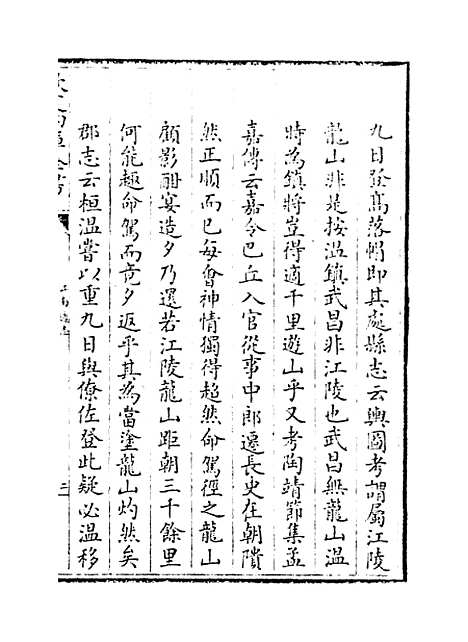 九日登髙落帽即其處縣志云輿圖考謂屬江陵
龍山非是按温鎮武昌非江陵也武昌無龍山温
時為鎮將豈得適千里遊山乎又考陶靖節集孟
嘉傳云嘉令巴丘入官從事中郎遷長史在朝隤
然正順而已每會神情獨得超然命駕徑之龍山
顧影酣宴造夕乃還若江陵龍山距朝三千餘里
何能趣命駕而竟夕返乎其為當塗龍山灼然矣
郡志云桓温嘗以重九日與僚佐登此疑必温移
三